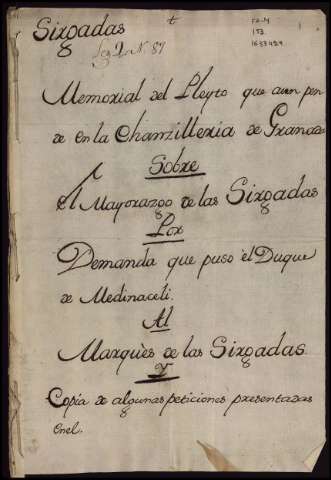 Sirgadas
Leg 2 N. 87
Memorial del Pleyto que aun pen
de en la Chanzilleria de Granada
Sobre
el Mayorazgo de las Sirgadas
Por
Demanda que puso el Duque
de Medinaceli.
Al
Marquès de las Sirgadas.
Y
Copia de algunas peticiones presentadas
enel.